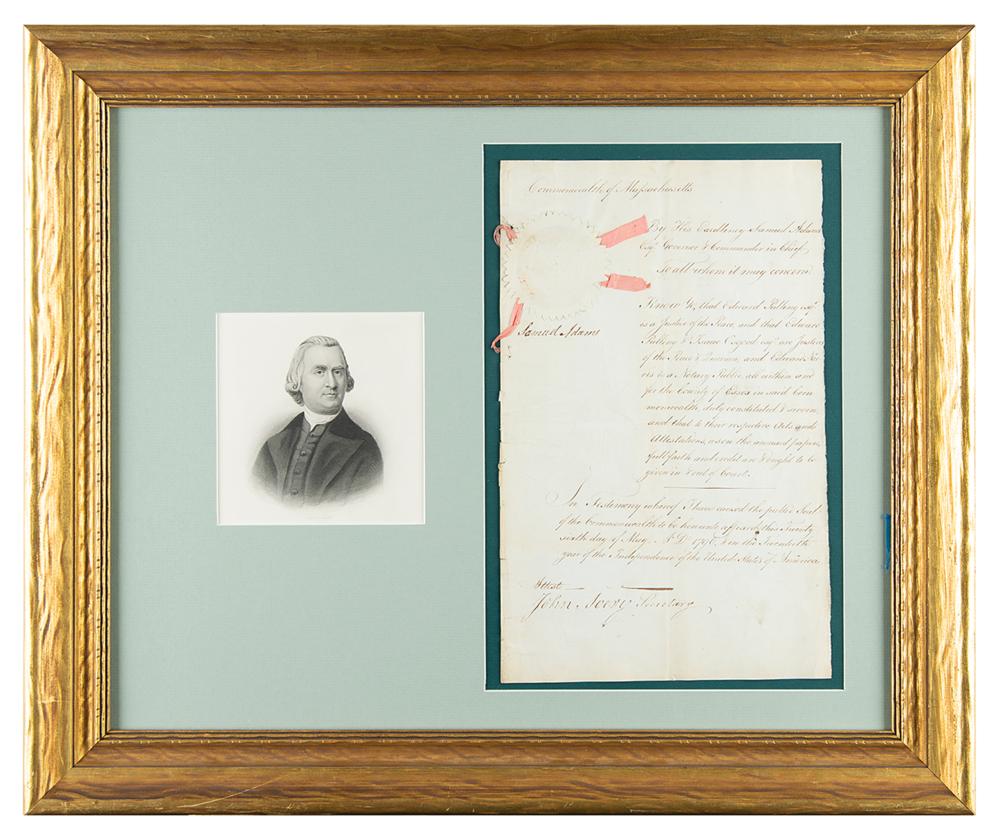 Commonwealth of Massachusetts
By His Excellency Samuel Adams
Esqr. Governor & Commander in Chief
To all whom it may concern
Know Ye, that Edward Pulling esqr
is a Justice of the Peace, and that Edward
Pulling & Isaac Osgood esqr are Justices
of the Peace & Quorum, and Edward Nor
ris is a Notary Public all within and
for the County of Essex in said Com
monwealth duly constituted & sworn,
and that to their respective Acts and
Attestations, as on the annexed papers,
full faith and credit are & ought to be
given in & out of Court.
Samuel Adams
In Testimony whereof I have caused the public Seal
of the Commonwealth to be hereunto affixed this Twenty
sixth day of May A.D. and in the
year of the Independence of the United States of America
Attest
John Avery Secretary